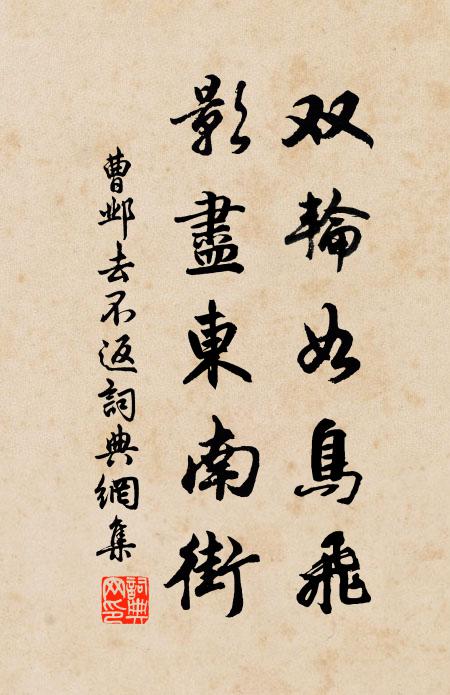 双輪如鳥飛
影盡東南街
曹邺去不返詞典網集
詞典
网印